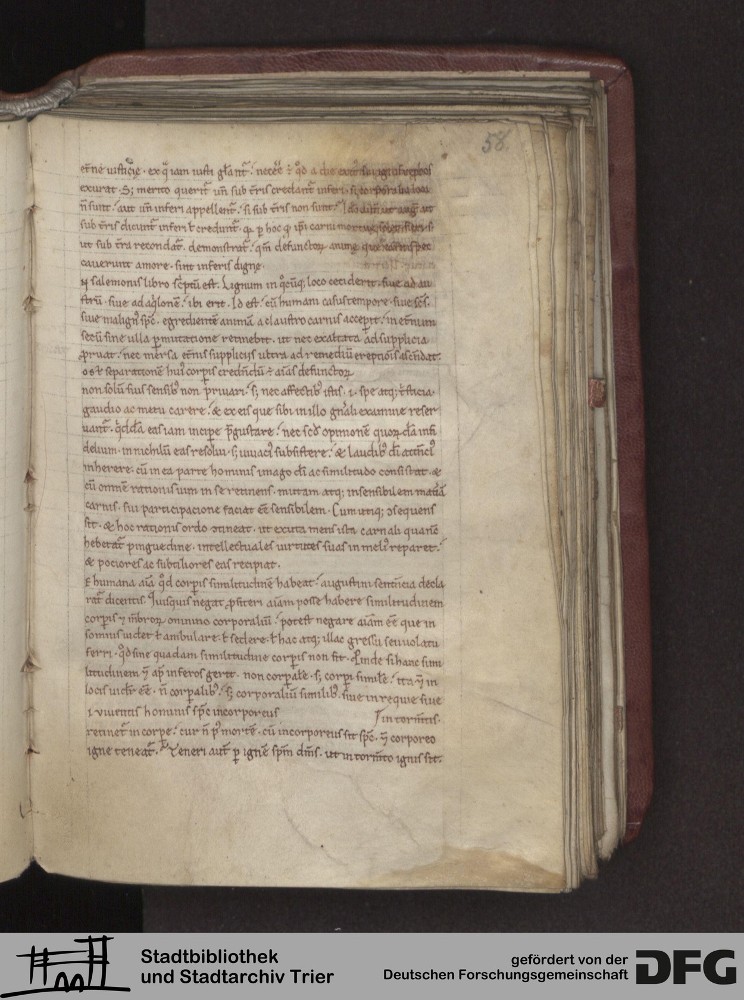 58
exurat. S; merito querit̃ uñ sub t̃ris credant̃ inferi
ñ sunt. aut uñ inferi appellent̃. si sub t̃ris non sunt
sub t̃ris dicunt̃ inferi ł credunt̃.
ut sub t̃ra recondat̃. demonstrat̃. qm̃ defunctoꝝ anime
cauerunt amore. sint inferis digne.
salemonis libro sc̃ptũ est. Lignum in q̊cũq; loco ceciderit. siue ad au
strũ. siue ad aq̃lonẽ. ibi erit. Id est. cũ humani casus tempore. siue sc̃s.
siue malign̾ sp̃c. egredientẽ animã a claustro carnis acceperit. in et̃num
secũ sine ulla p̱mutatione retinebit. ut nec exaltata ad supplicia
p̱ruat. nec mersa et̃nis supplicijs ultra ad remediũ ereptionis ascendat.
separationem hui̾ corpis credendũ ÷ aĩas defunctoꝝ
non solũ suis sensib̾ non priuari. s; nec affectib̾ istis. i. spe atq; t̃sticia.
gaudio ac metu carere. & ex eis que sibi in illo gñali examine reser
uant̃. q̃dda eas iam incipe p̃gustare. nec scđ opinionẽ quoꝝdã infi
delium. in nichilũ eas resolui. s; uiuaci̾ subsistere. & laudib̾ di attenci̾
inherere. cũ in ea parte hominis imago di ac similitudo consistat. &
cũ omnem rationis uim in se retinens. mutam atq; insensibilem materiã
carnis. sui participacione faciat eẽ sensibilem. Cum utiq; ɔsequens
sit. & hoc rationis ordo ɔtineat. ut exuta mens ista carnali qua nc̃
hebetat̃ pinguedine. intellectuales uirtutes suas in meli̾ reparet.
& pociores ac subtiliores eas recipiat.
humana aĩa q̊d corpis similitudinẽ habeat. augustini sentencia decla
rat̃ dicentis. Quisquis negat p̱fiteri aĩam posse habere similitudinem
corpis ⁊ mẽbroꝝ omnino corporaliũ. potest negare aĩam eẽ que in
somnis uidet ł ambulare. ł sedere. ł hac atq; illac gressu seu uolatu
ferri. q̊d sine quadam similitudine corpis non fit. Proinde si hanc simi
litudinem ⁊ ap̃ inferos gerit. non corpale. s; corpi simile. ita ⁊ in
locis uidet̃ eẽ. ñ corpalib̾. s; corporaliũ similib̾. siue in requie siue
in torm̃tis.
i uiuentis hominis sp̃c incorporeus
retinet̃ in corpe. cur ñ p̾ mortẽ. cũ incorporeus sit sp̃c. ⁊ corporeo
igne teneat̃. Teneri aut̃ p ignẽ sp̃m dm̃s. ut in torm̃to ignis sit.
Stadtbibliothek
und Stadtarchiv Trier
gefördert von der
Deutschen Forschungsgemeinschaft
DFG